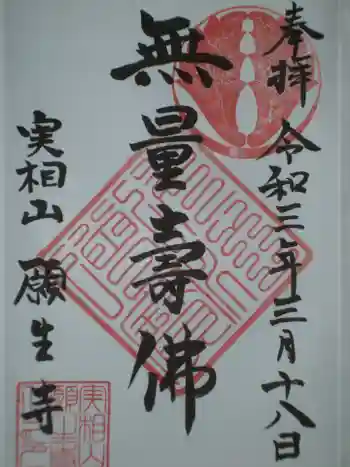 奉拝 令和三年三月十八日
無量壽佛
実相山 願生寺
実相山
願生寺